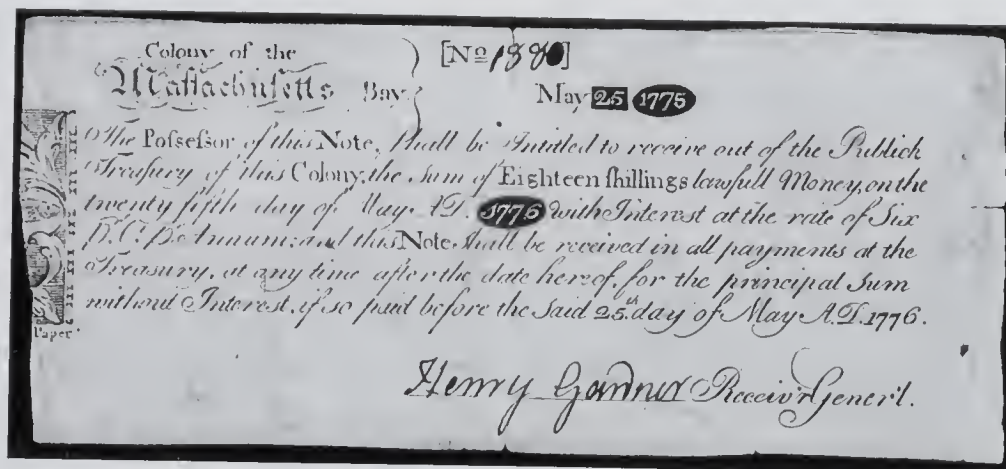 Colony of the
Massachusetts Bay
[No 188]
May 25 1775
The Possessor of this Note, shall be Intitled to receive out of the Publick
Treasury of this Colony, the Sum of Eighteen shillings lawfull Money, on the
twenty fifth day of May A.D. 1776 with Interest at the rate of Six
P.C. Pr Annum: and this Note shall be received in all payments at the
Treasury, at any time after the date hereof, for the principal Sum
without Interest, if so paid before the said 25th day of May A.D. 1776.
Paper
Henry Gardner Receiv'r Gener'l.